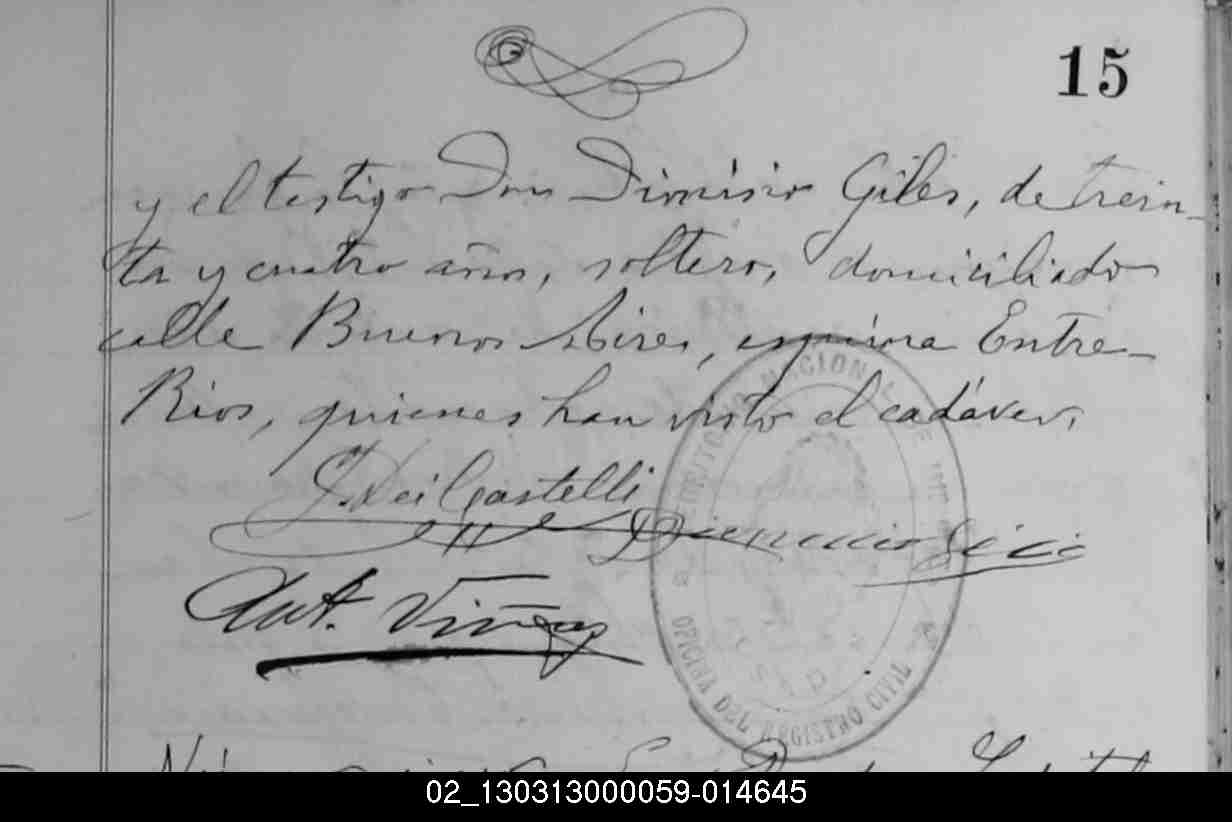 15
y el testigo Don Dionisio Giles, de trein-
ta y cuatro años, soltero, domiciliado
calle Buenos Aires, esquina Entre-
Rios, quienes han visto el cadáver.
Castelli
Ant. Viñas
NACIONAL DE
OFICINA DEL REGISTRO CIVIL
02_130313000059-014645